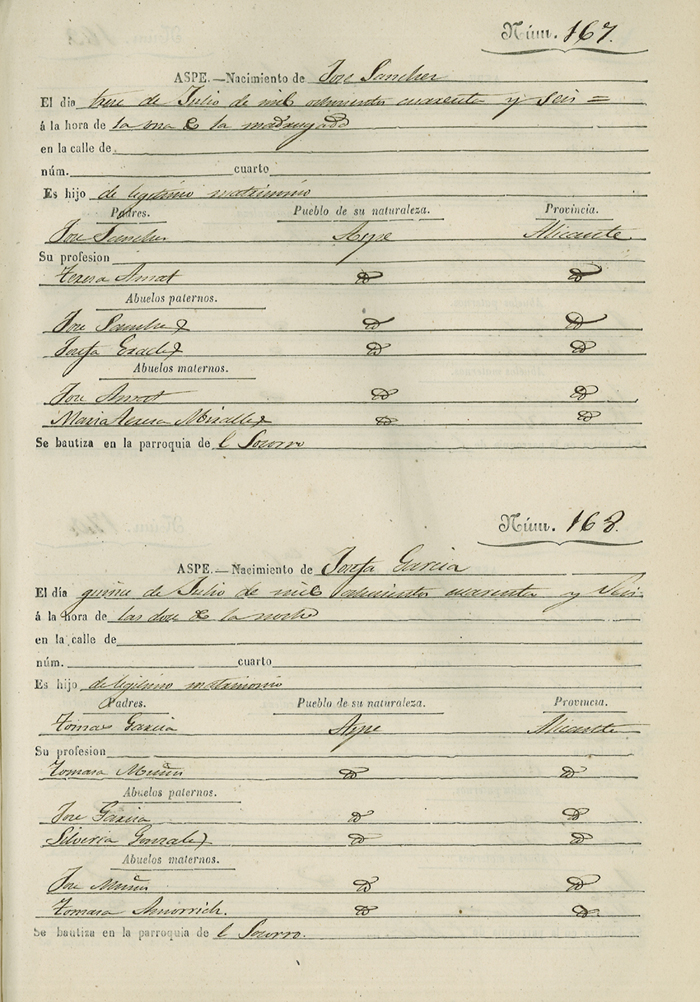 Núm. 167.
ASPE.—Nacimiento de Jose Sanchez
El dia trece de Julio de mil ochocientos cuarenta y seis =
á la hora de la una de la madrugada
en la calle de
núm. cuarto
Es hijo de legitimo matrimonio
Padres. Pueblo de su naturaleza. Provincia.
Jose Sanchez Aspe Alicante
Su profesion
Teresa Amat id id
Abuelos paternos.
Jose Sanchez id id
Josefa id id
Abuelos maternos.
Jose Amat id id
Maria Teresa Miralles id id
Se bautiza en la parroquia de l Socorro
Núm. 168.
ASPE.—Nacimiento de Josefa Garcia
El día quince de Julio de mil ochocientos cuarenta y Seis
á la hora de las doce de la noche
en la calle de
núm. cuarto
Es hijo de legitimo matrimonio
Padres. Pueblo de su naturaleza. Provincia.
Tomas Garcia Aspe Alicante
Su profesion
Tomasa Muñoz id id
Abuelos paternos.
Jose Garcia id id
Silveria Gonzalez id id
Abuelos maternos.
Jose Muñoz id id
Tomasa id id
Se bautiza en la parroquia de l Socorro.